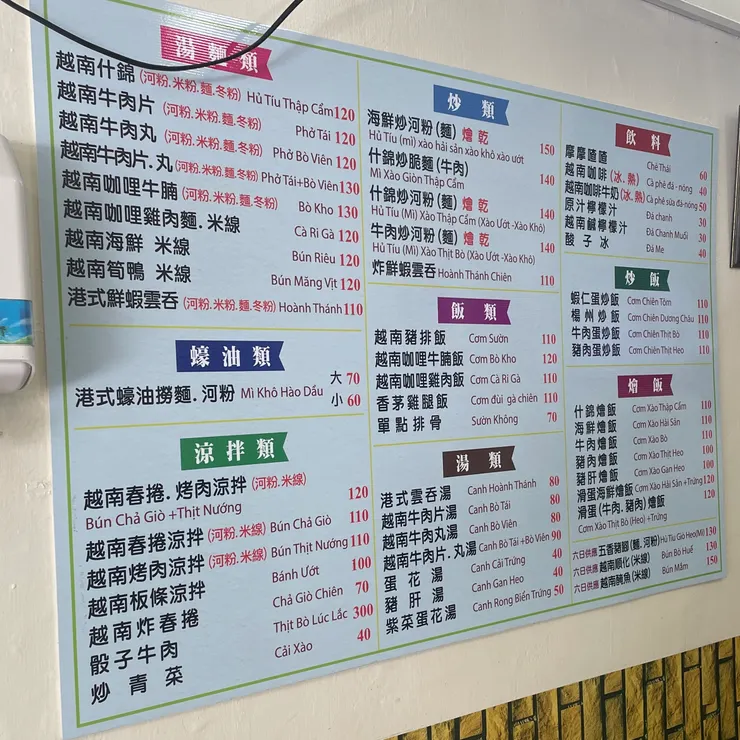 湯麵類
越南什錦 (河粉.米粉.麵.冬粉) Hủ Tíu Thập Cẩm 120
越南牛肉片 (河粉.米粉.麵.冬粉) Phở Tái 120
越南牛肉丸 (河粉.米粉.麵.冬粉) Phở Bò Viên 120
越南牛肉片.丸 (河粉.米粉.麵.冬粉) Phở Tái+Bò Viên 130
越南咖哩牛腩 (河粉.米粉.麵.冬粉) Bò Kho 130
越南咖哩雞肉麵.米線 Cà Ri Gà 120
越南海鮮 米線 Bún Riêu 120
越南筍鴨 米線 Bún Măng Vịt 120
港式鮮蝦雲吞 (河粉.米粉.麵.冬粉) Hoành Thánh 110
蠔油類
港式蠔油撈麵.河粉 Mì Khô Hào Dầu 大 70
小 60
涼拌類
越南春捲.烤肉涼拌 (河粉.米線) 120
Bún Chả Giò +Thịt Nướng
越南春捲涼拌 (河粉.米線) Bún Chả Giò 110
越南烤肉涼拌 (河粉.米線) Bún Thịt Nướng 110
越南板條涼拌 Bánh Ướt 100
越南炸春捲 Chả Giò Chiên 70
骰子牛肉 Thịt Bò Lúc Lắc 300
炒青菜 Cải Xào 40
炒類
海鮮炒河粉(麵) 燴 乾 150
Hủ Tíu (mì) xào hải sản xào khô xào ướt
什錦炒脆麵(牛肉) 140
Mì Xào Giòn Thập Cẩm
什錦炒河粉(麵) 燴 乾 140
Hủ Tíu (Mì) Xào Thập Cẩm (Xào Ướt -Xào Khô)
牛肉炒河粉(麵) 燴 乾 140
Hủ Tíu (Mì) Xào Thịt Bò (Xào Ướt -Xào Khô)
炸鮮蝦雲吞 Hoành Thánh Chiên 110
飯類
越南豬排飯 Cơm Sườn 110
越南咖哩牛腩飯 Cơm Bò Kho 120
越南咖哩雞肉飯 Cơm Cà Ri Gà 110
香茅雞腿飯 Cơm đùi gà chiên 110
單點排骨 Sườn Không 70
湯類
港式雲吞湯 Canh Hoành Thánh 80
越南牛肉片湯 Canh Bò Tái 80
越南牛肉丸湯 Canh Bò Viên 80
越南牛肉片.丸湯 Canh Bò Tái +Bò Viên 90
蛋花湯 Canh Cải Trứng 40
豬肝湯 Canh Gan Heo 40
紫菜蛋花湯 Canh Rong Biển Trứng 50
飲料
摩摩喳喳 Chè Thái 60
越南咖啡 (冰.熱) Cà phê đá - nóng 40
越南咖啡牛奶 (冰.熱) Cà phê sữa đá-nóng 50
原汁檸檬汁 Đá chanh 30
越南鹹檸檬汁 Đá Chanh Muối 30
酸子冰 Đá Me 40
炒飯
蝦仁蛋炒飯 Cơm Chiên Tôm 110
楊州炒飯 Cơm Chiên Dương Châu 110
牛肉蛋炒飯 Cơm Chiên Thịt Bò 110
豬肉蛋炒飯 Cơm Chiên Thịt Heo 110
燴飯
什錦燴飯 Cơm Xào Thập Cẩm 110
海鮮燴飯 Cơm Xào Hải Sản 110
牛肉燴飯 Cơm Xào Bò 110
豬肉燴飯 Cơm Xào Thịt Heo 100
豬肝燴飯 Cơm Xào Gan Heo 100
滑蛋海鮮燴飯 Cơm Xào Hải Sản +Trứng 120
滑蛋(牛肉.豬肉)燴飯 120
Cơm Xào Thịt Bò (Heo) +Trứng
六日供應 五香豬腳(麵.河粉) Hủ Tíu Giò Heo(Mì) 130
六日供應 越南順化(米線) Bún Bò Huế 130
六日供應 越南醃魚(米線) Bún Mắm 150